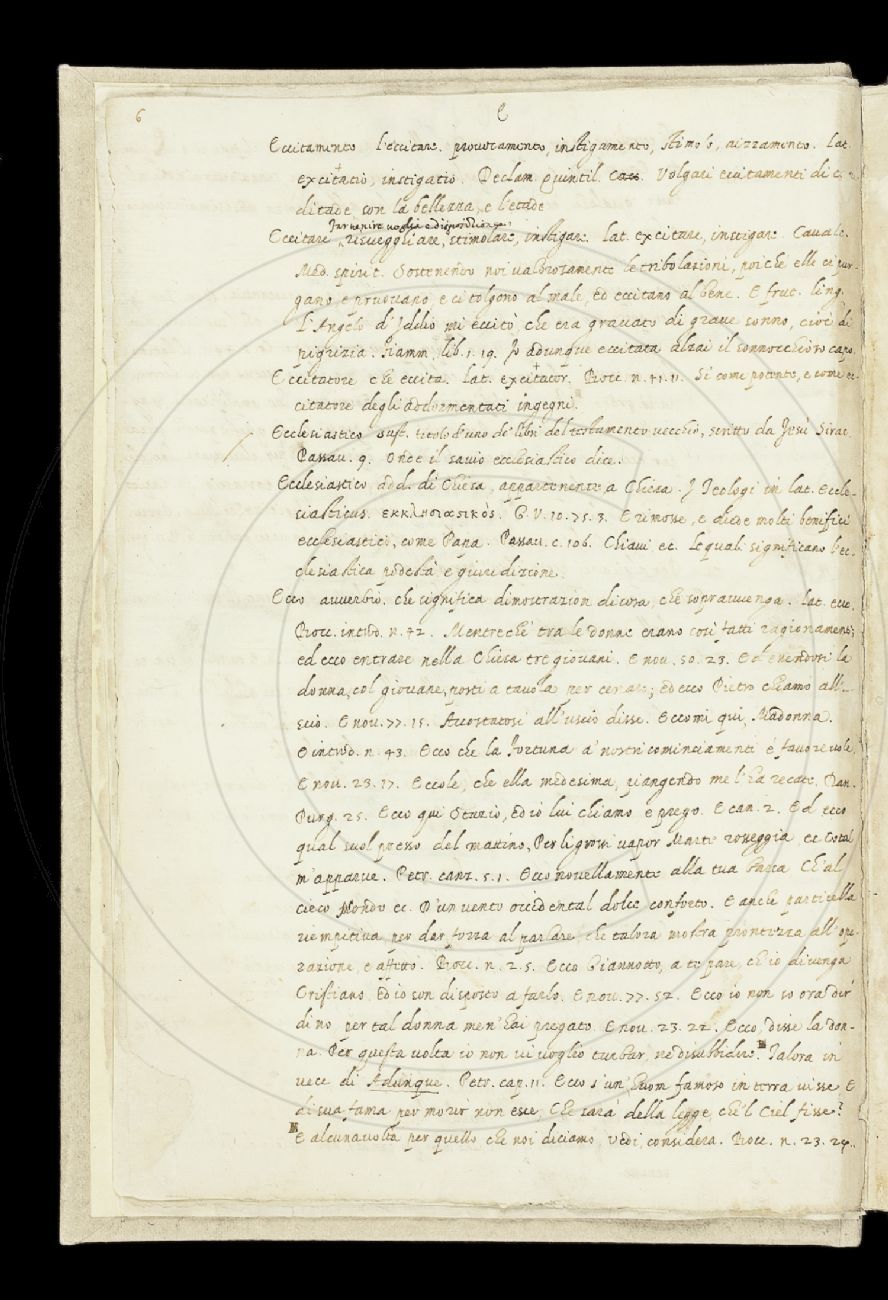 6
E
Eccitamento L'eccitare. provocamento, instigamento, stimolo, aizzamento. Lat.
excitatio, instigatio. Declam. Quintil. Volgari eccitamenti di
ditade son la bellezza, e l'etade
Far venire voglia e disposizione
Eccitare, risvegliare, stimolare, instigare. Lat. excitare, instigare. Cavalc.
Med. spirit. Sostenendo noi valorosamente le tribolazioni, poi che elle ci pur-
gano, e pruovano, e ci tolgono al male, ed eccitano al bene. E frut. ling.
L'Angelo d'Iddio mi eccitò, che era gravato di grave sonno, cioè di
pigrizia. Fiamm. lib. 1. 19. Io adunque eccitata alzai il sonnocchioso capo.
Eccitatore che eccita. Lat. excitator. Bocc. n. 41. 11. Si come potente, e come ec-
citatore degli addormentati ingegni.
Ecclesiastico sust. titolo d'uno de' libri del testamento vecchio, scritto da Jesù Sirac.
Passav. 9. Onde il savio ecclesiastico dice.
Ecclesiastico add. di Chiesa, appartenente a Chiesa. I Teologi in lat. eccle-
siasticus. εκκλησιασικὸς. G. V. 10. 75. 3. E rimosse, e diede molti benifici
ecclesiastici, come Papa. Passav. c. 106. Chiavi ec. Le quali significano l'ec-
clesiastica podestà e giuridizione.
Ecco avverbio. che significa dimostrazion di cosa, che sopravvenga. Lat. ecce.
Bocc. introd. n. 42. Mentreche tra le donne erano così fatti ragionamenti,
ed ecco entrare nella Chiesa tre giovani. E nov. 50. 23. Ed essendosi la
donna, col giovane, posti a tavola per cenare; ed ecco Pietro chiamò all'u-
scio. E nov. 77. 15. Accostatosi all'uscio disse. Eccomi qui, Madonna.
E introd. n. 43. Ecco che la Fortuna a' nostri cominciamenti è favorevole.
E nov. 23. 17. Eccole, che ella medesima, piangendo me l'ha recate. Dan.
Purg. 25. Ecco qui Stazio, ed io lui chiamo e prego. E can. 2. Ed ecco
qual suol presso del mattino, Per li grossi vapor Marte rosseggia ec Cotal
m'apparve. Petr. canz. 5. 1. Ecco novellamente alla tua barca Ch'al
cieco Mondo ec. D'un vento occidental dolce conforto. E anche particella
riempitiva per dar forza al parlare, che talora mostra prontezza all'ope-
razione, e affetto. Bocc. n. 2. 5. Ecco Giannotto, a te pare, ch'io divenga
Cristiano Ed io son disposto a farlo. E nov. 77. 52. Ecco io non so ora dir
di no per tal donna men'hai pregato. E nov. 23. 22. Ecco, disse la don-
na. Per questa volta io non vi voglio turbar, ne disubbidire. Talora in
vece di Adunque. Petr. cap. 11. Ecco s'un, huom famoso in terra visse, E
di sua fama per morir non esce, Che sarà della legge, che'l Ciel fisse?
E alcuna volta per quello che noi diciamo, Vedi, considera. Bocc. n. 23. 24.